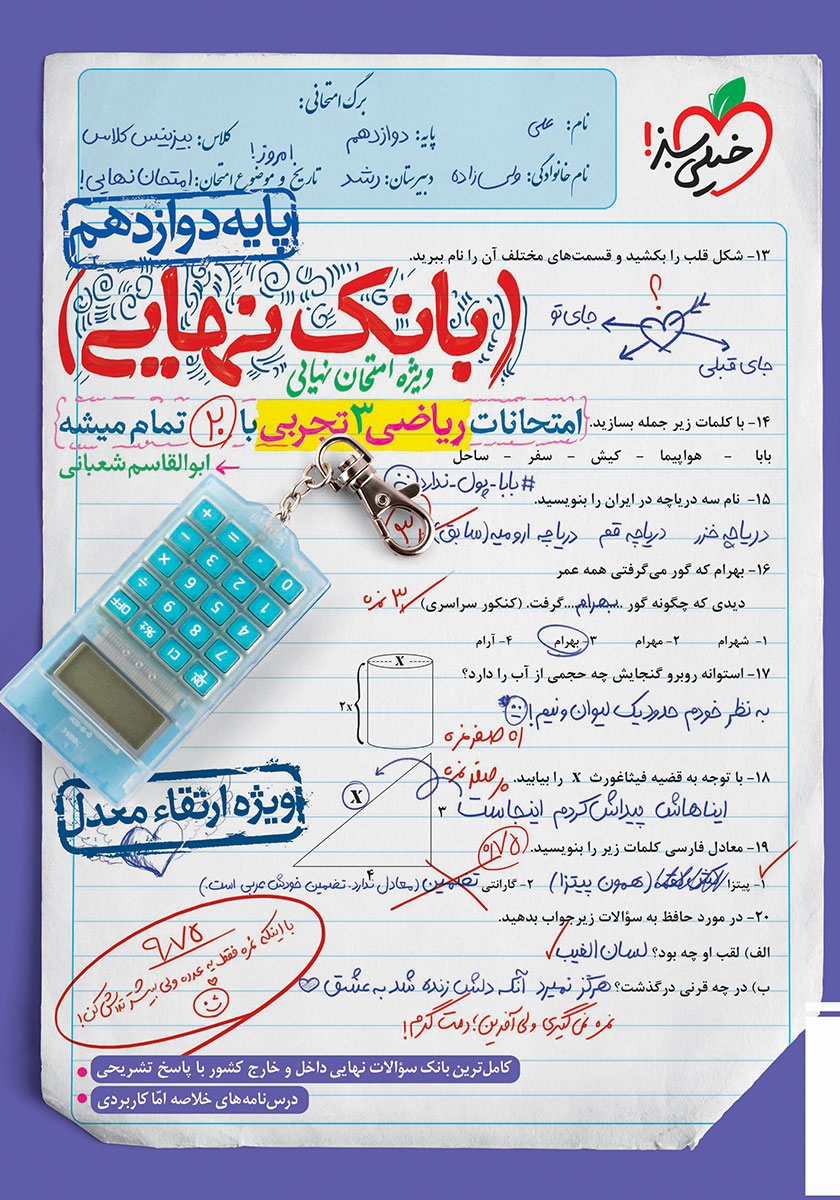 برگ امتحانی:
نام: علی
پایه: دوازدهم
کلاس: بیزینس کلاس
نام خانوادگی: ولی‌زاده
دبیرستان: رشد
تاریخ و موضوع امتحان: امروز! امتحان نهایی!
خیلی سبز!
پایه دوازدهم
۱۳- شکل قلب را بکشید و قسمت‌های مختلف آن را نام ببرید.
(بانک نهایی)
ویژه امتحان نهایی
؟
جای تو
جای قبلی
امتحانات ریاضی ۳ تجربی با ۲۰ تمام میشه
ابوالقاسم شعبانی
۱۴- با کلمات زیر جمله بسازید.
بابا - هواپیما - کیش - سفر - ساحل
#بابا-پول-ندارد
۱۵- نام سه دریاچه در ایران را بنویسید.
دریاچه خزر دریاچه قم دریاچه ارومیه (سابق)
۳
۱۶- بهرام که گور می‌گرفتی همه عمر
دیدی که چگونه گور ...بهرام... گرفت. (کنکور سراسری)
۳ نمره
۱- شهرام ۲- مهرام ۳- بهرام ۴- آرام
۱۷- استوانه روبرو گنجایش چه حجمی از آب را دارد؟
X
۲x
به نظر خودم حدود یک لیوان و نیم!
اه صفر نمره
۱۸- با توجه به قضیه فیثاغورث X را بیابید.
صفر نمره
ایناهاش پیداش کردم اینجاست
X
۳
۴
ویژه ارتقاء معدل
۱۹- معادل فارسی کلمات زیر را بنویسید.
۰/۷۵
۱- پیتزا (همون پیتزا) ۲- گارانتی تضمین (معادل ندارد. تضمین خودش عربی است.)
۲۰- در مورد حافظ به سؤالات زیر جواب بدهید.
الف) لقب او چه بود؟ لسان الغیب
ب) در چه قرنی درگذشت؟ هرگز نمیرد آنکه دلش زنده شد به عشق
نمره نمی‌گیری ولی آفرین؛ دمت گرم!
۹/۷۵
با اینکه نمره فقط یه عدده ولی بیشتر تلاش کن!
کامل‌ترین بانک سؤالات نهایی داخل و خارج کشور با پاسخ تشریحی
درس‌نامه‌های خلاصه امّا کاربردی
+ = . 0
− 3 2 1
× 6 5 4
÷ 9 8 7
OFF %± CI ON